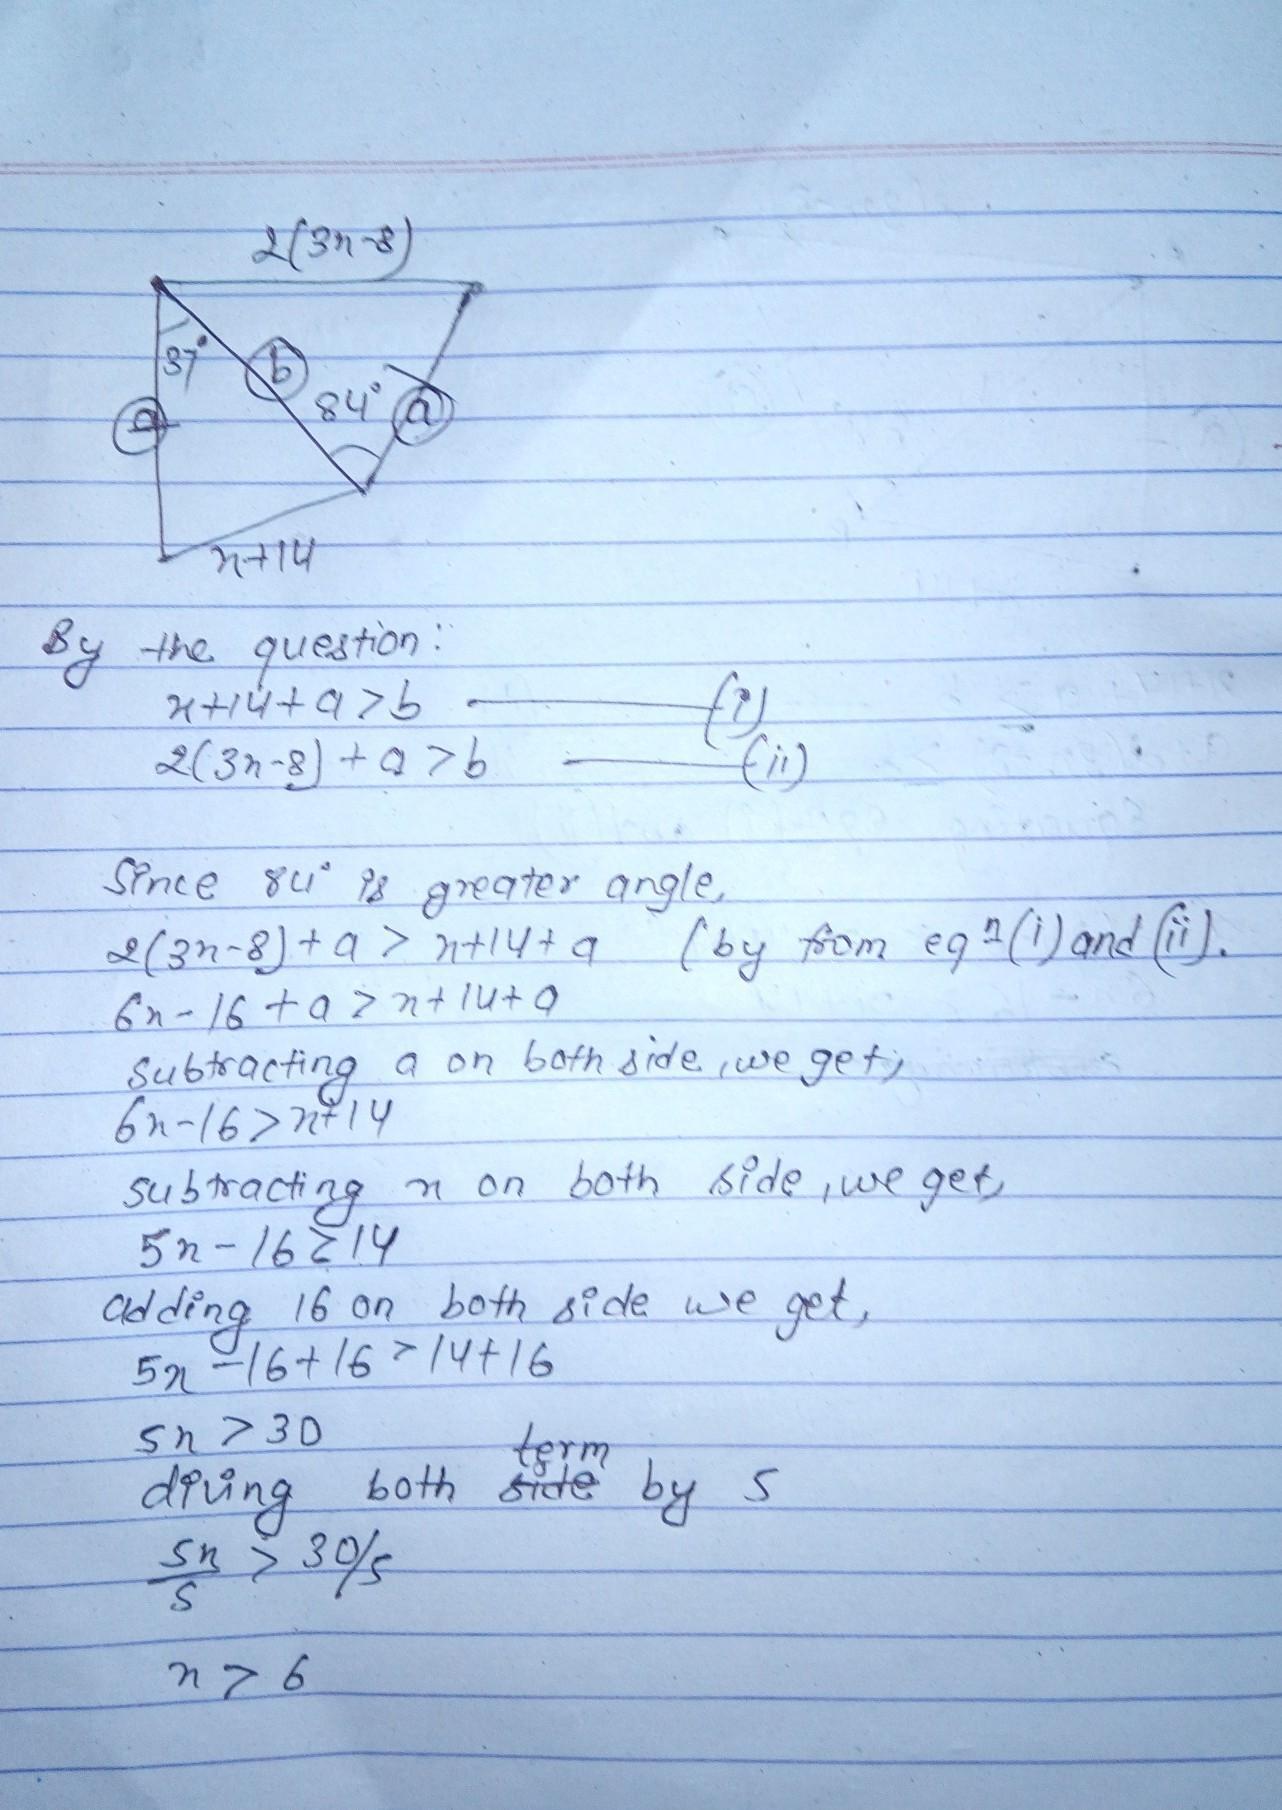 2(3x-8)
37°
b
84°
a
a
x+14
By the question:
x+14+a>b (i)
2(3x-8)+a>b (ii)
Since 84° is greater angle,
2(3x-8)+a > x+14+a (by from eqn (i) and (ii).
6x-16+a>x+14+a
subtracting a on both side, we get,
6x-16>x+14
subtracting x on both side, we get,
5x-16>14
adding 16 on both side we get,
5x-16+16>14+16
5x>30
term
diving both side by 5
5x/5 > 30/5
x>6